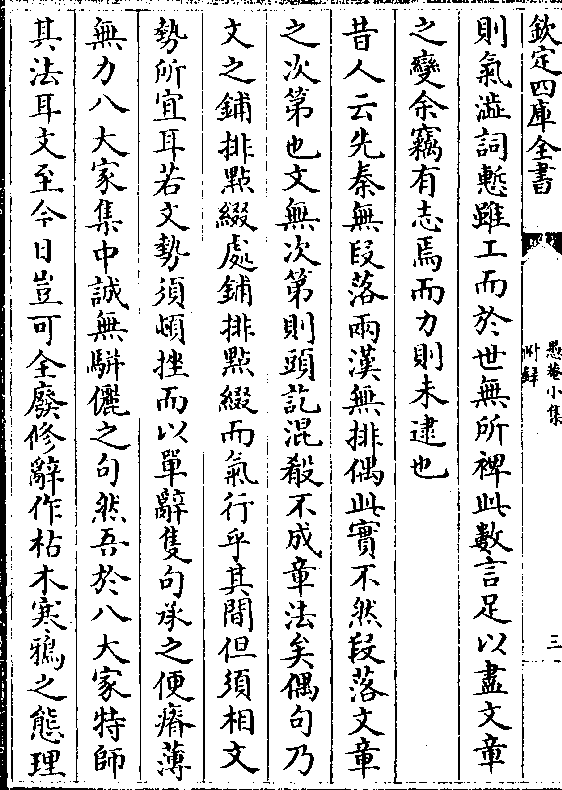 欽定四庫全書
愚菴小集
附録
三
則氣澁詞慙雖工而於世無所裨此數言足以盡文章
之變余竊有志焉而力則未逮也
昔人云先秦無段落兩漢無排偶此實不然段落文章
之次第也文無次第則頭訖混殽不成章法矣偶句乃
文之鋪排點綴處鋪排點綴而氣行乎其間但須相文
勢所宜耳若文勢須頓挫而以單辭隻句承之便瘠薄
無力八大家集中誠無駢儷之句然吾於八大家特師
其法耳文至今日豈可全廢修辭作枯木寒鴉之態理